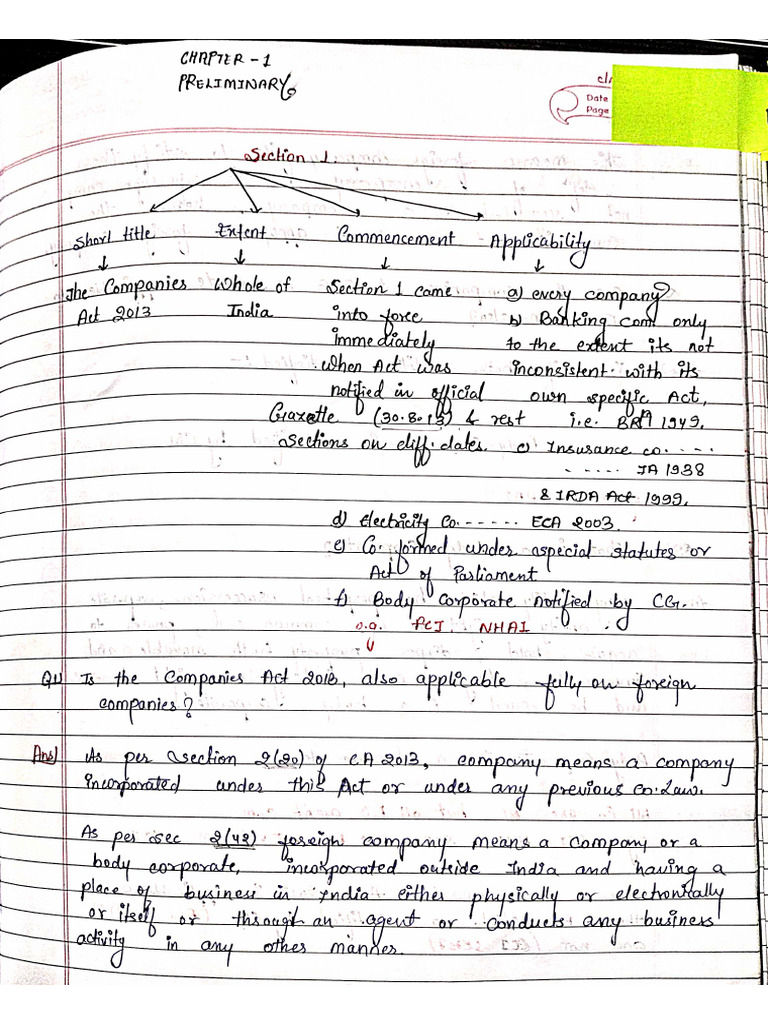 CHAPTER - 1
PRELIMINARY
Date
Page
Section 1
Short title Extent Commencement Applicability
The Companies Whole of Section 1 came a) every company
Act 2013 India into force b) Banking com only
immediately to the extent its not
when Act was inconsistent with its
notified in official own specific Act,
Gazette (30.8.13) & rest i.e. BRA 1949.
sections on diff. dates. c) Insurance co. ....
..... IA 1938
& IRDA Act 1999.
d) Electricity Co. ------ ECA 2003.
e) Co. formed under a special statutes or
Act of Parliament
f) Body corporate notified by CG.
NHAI
Q1) Is the Companies Act 2013, also applicable fully on foreign
companies?
Ans) As per section 2(20) of CA 2013, company means a company
incorporated under this Act or under any previous co. Law.
As per sec 2(42) foreign company means a company or a
body corporate, incorporated outside India and having a
place of business in India either physically or electronically
or itself or through an agent or conducts any business
activity in any other manner.